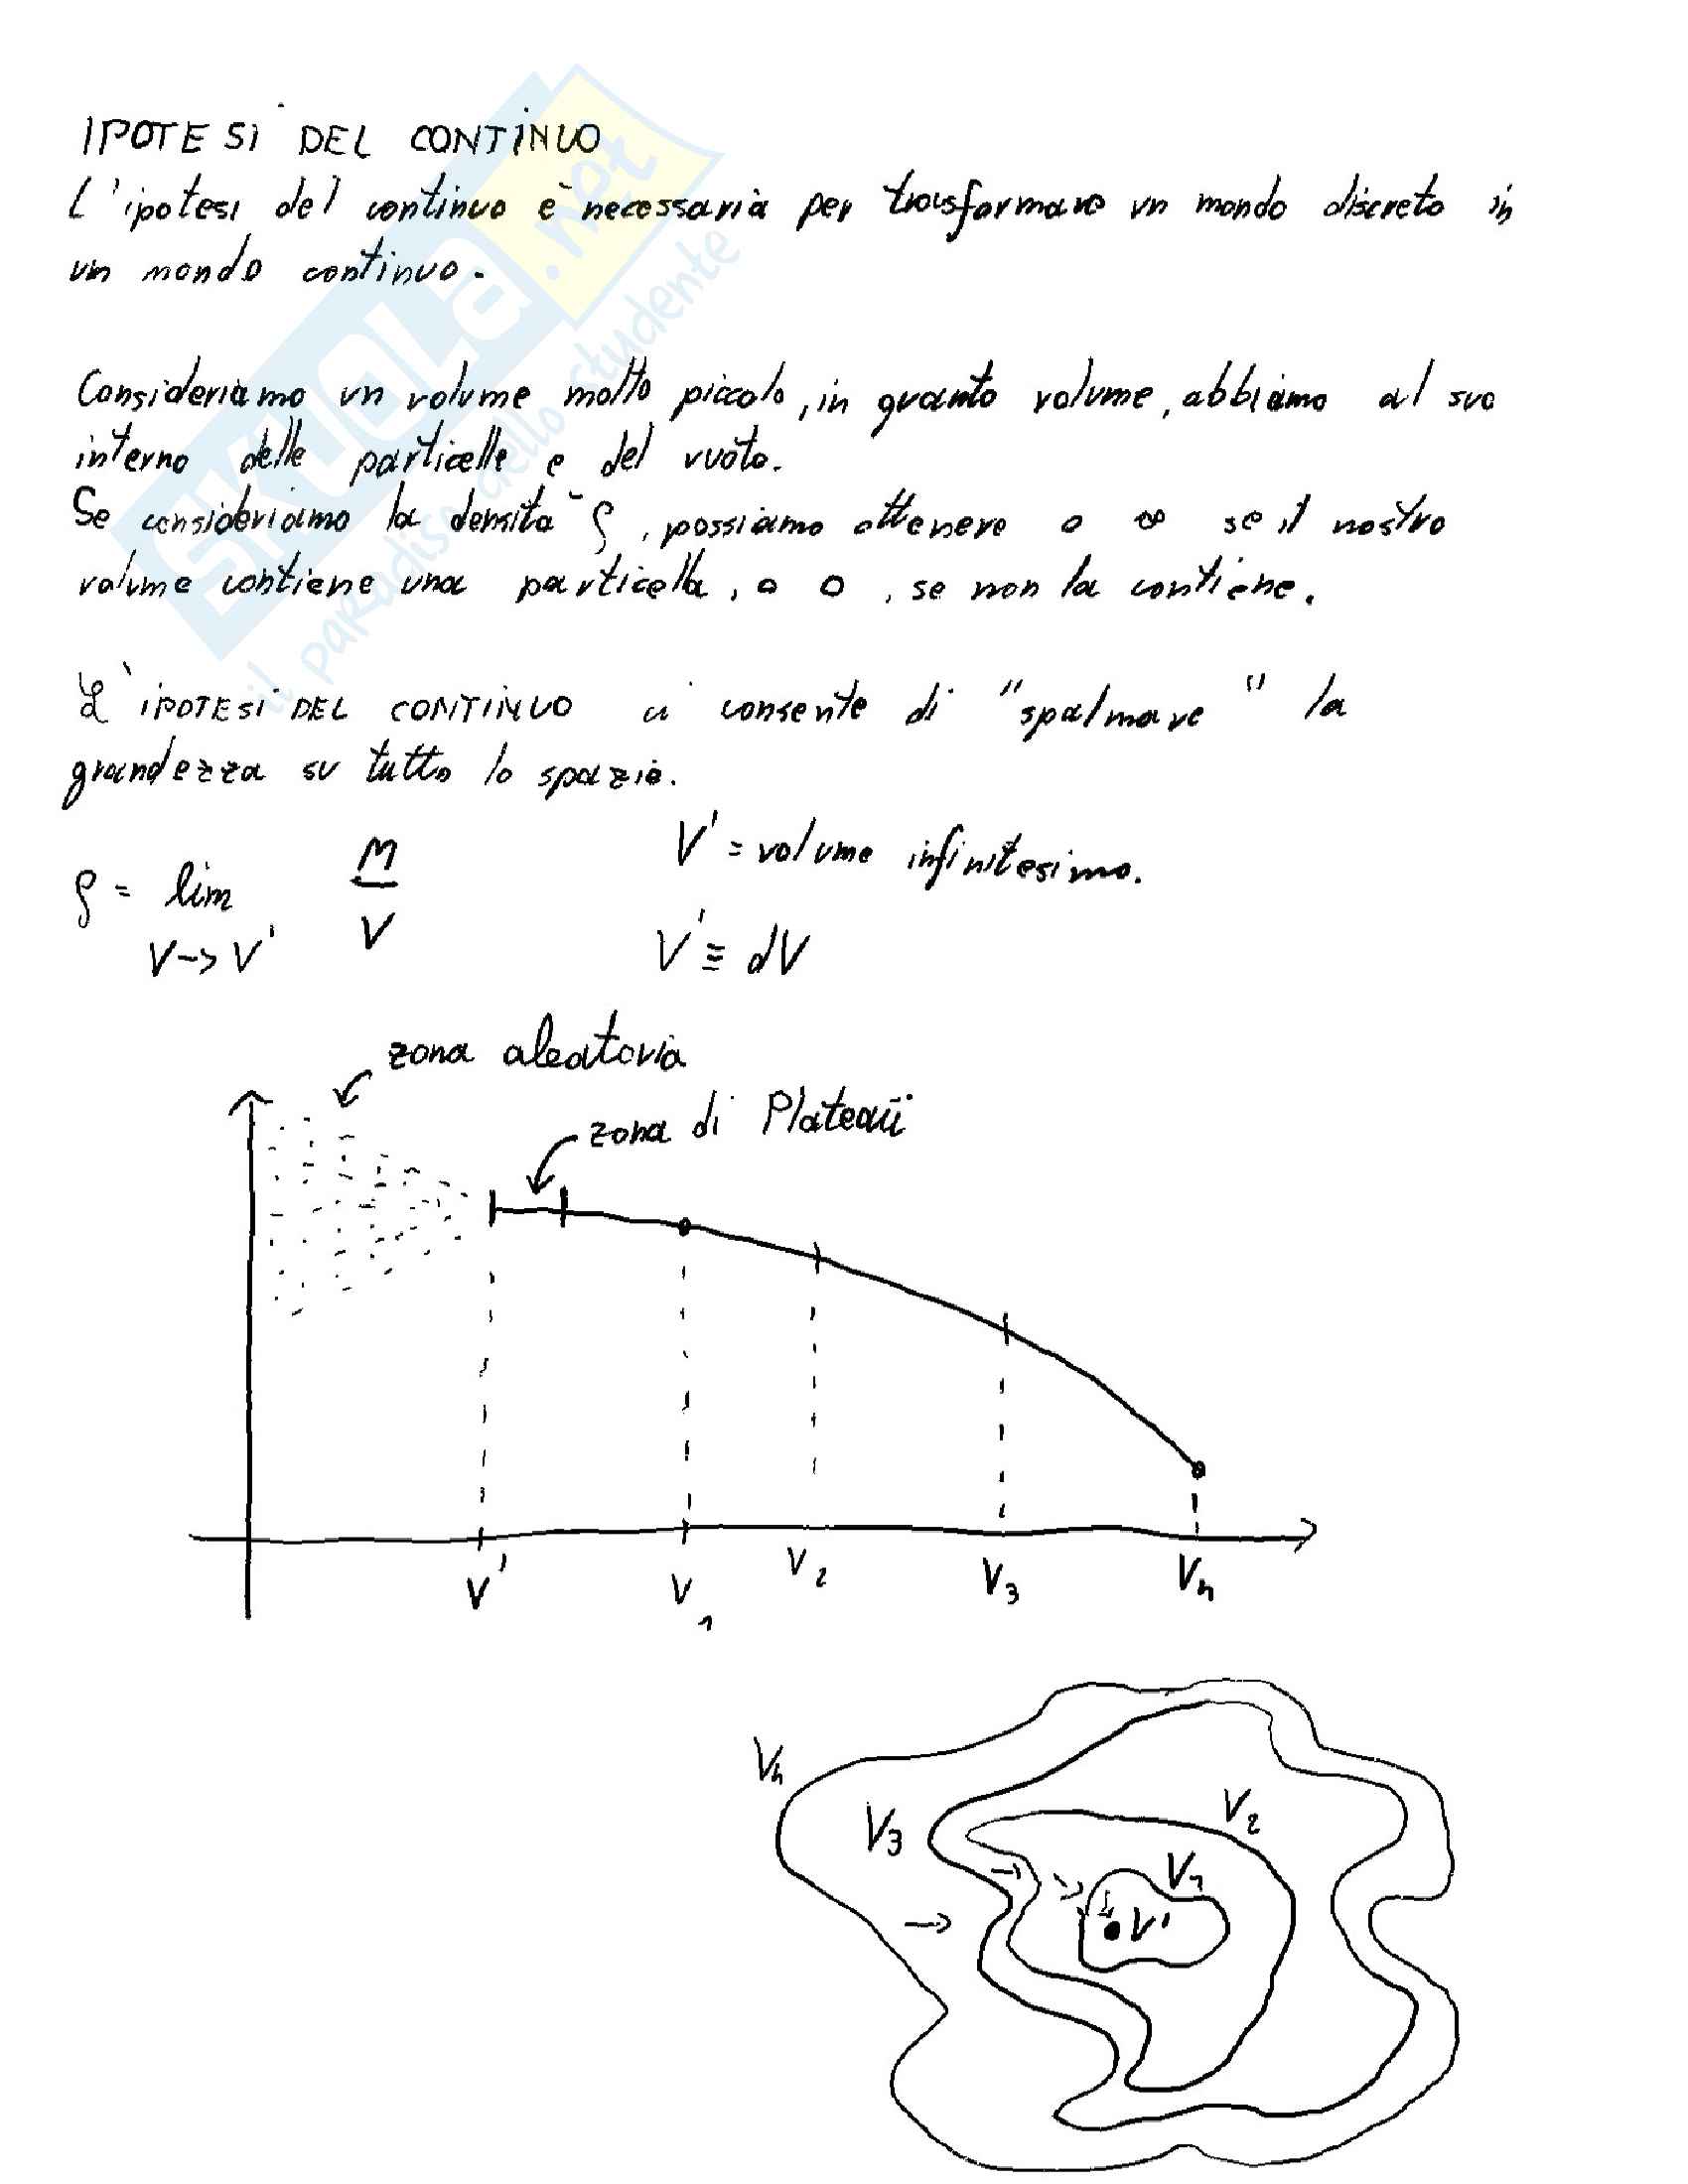 IPOTESI DEL CONTINUO
L'ipotesi del continuo è necessaria per trasformare un mondo discreto in
un mondo continuo.
Consideriamo un volume molto piccolo, in quanto volume, abbiamo al suo
interno delle particelle e del vuoto.
Se consideriamo la densità ρ, possiamo ottenere o ∞ se il nostro
volume contiene una particella, o 0, se non la contiene.
L'IPOTESI DEL CONTINUO ci consente di "spalmare" la
grandezza su tutto lo spazio.
ρ = lim V→V' M/V
V' = volume infinitesimo.
V' ≡ dV
zona aleatoria
zona di Plateaü
V' V1 V2 V3 Vn
Vn
V3
V2
V1
V'
SKUOLA.net
il paradiso dello studente